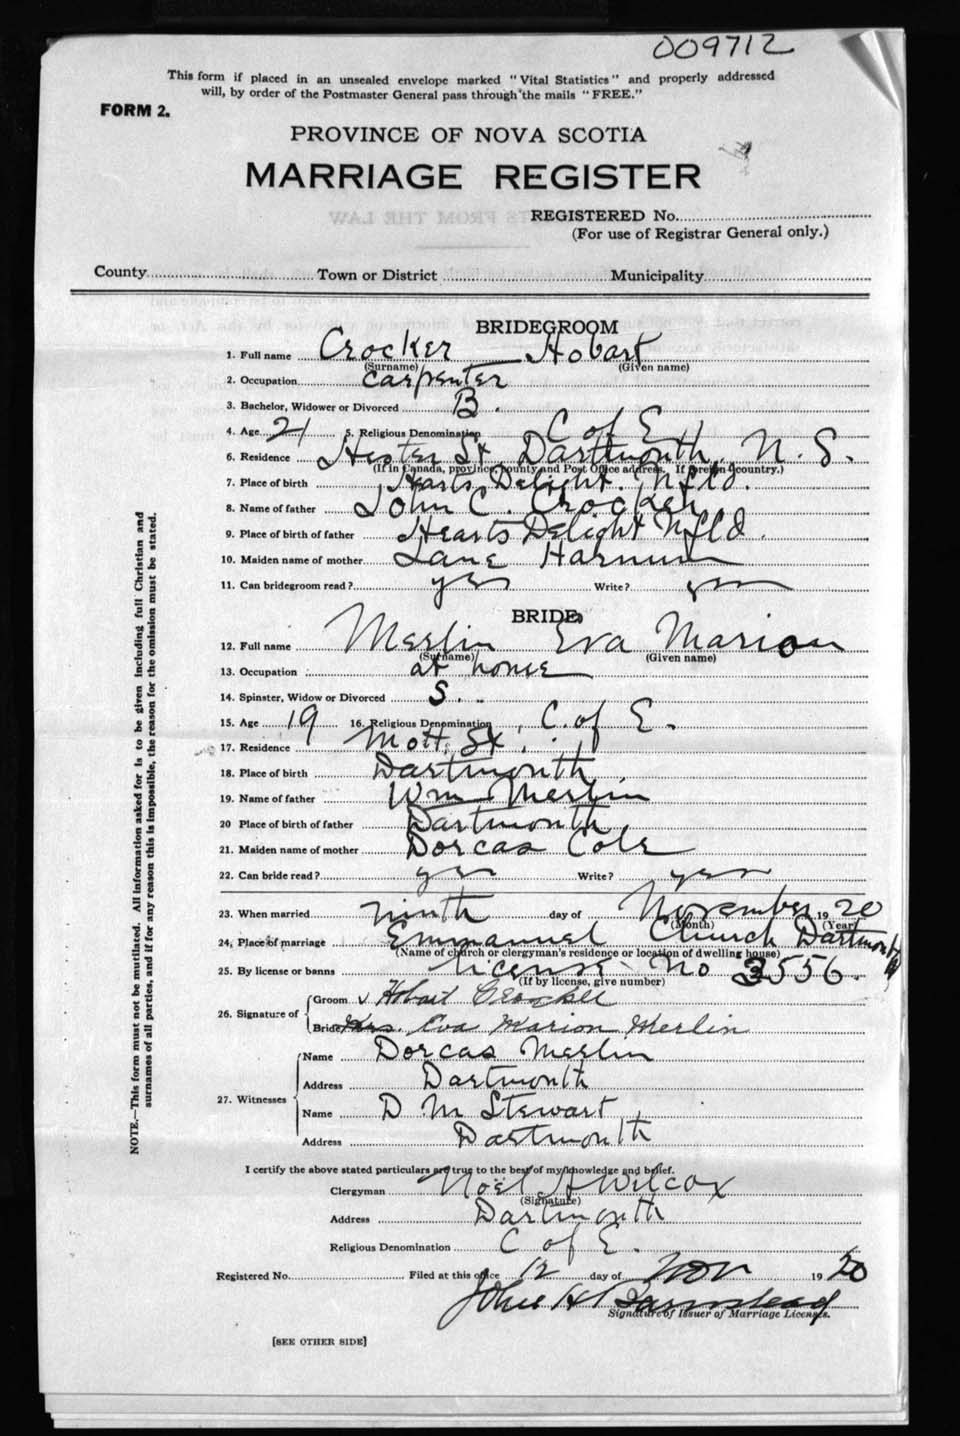 009712
This form if placed in an unsealed envelope marked "Vital Statistics" and properly addressed
will, by order of the Postmaster General pass through the mails "FREE."
FORM 2.
PROVINCE OF NOVA SCOTIA
MARRIAGE REGISTER
REGISTERED No.
(For use of Registrar General only.)
County Town or District Municipality
BRIDEGROOM
1. Full name Crocker Hobart
(Surname) (Given name)
2. Occupation carpenter
3. Bachelor, Widower or Divorced B.
4. Age 21 5. Religious Denomination C of E
6. Residence Hester St Dartmouth, N. S.
(If in Canada, province, county and Post Office address. If foreign country.)
7. Place of birth Hearts Delight. Nfld.
8. Name of father John C. Crocker
9. Place of birth of father Hearts Delight Nfld.
10. Maiden name of mother Jane Harnum
11. Can bridegroom read? yes Write? yes
BRIDE
12. Full name Merlin Eva Marion
(Surname) (Given name)
13. Occupation at home
14. Spinster, Widow or Divorced S.
15. Age 19 16. Religious Denomination C. of E.
17. Residence Mott. St.
18. Place of birth Dartmouth
19. Name of father Wm Merlin
20 Place of birth of father Dartmouth
21. Maiden name of mother Dorcas Cole
22. Can bride read? yes Write? yes
23. When married ninth day of November 1920
(Month) (Year)
24. Place of marriage Emmanuel Church Dartmouth
(Name of church or clergyman's residence or location of dwelling house)
25. By license or banns license No 3556.
(If by license, give number)
26. Signature of
Groom v Hobart Crocker
Bride Mrs. Eva Marion Merlin
27. Witnesses
Name Dorcas Merlin
Address Dartmouth
Name D M Stewart
Address Dartmouth
I certify the above stated particulars are true to the best of my knowledge and belief.
Clergyman Noël A Wilcox
(Signature)
Address Dartmouth
Religious Denomination C of E.
Registered No. Filed at this office 12 day of Nov 1920
John H Barnstead
Signature of Issuer of Marriage Licenses.
[SEE OTHER SIDE]
NOTE.—This form must not be mutilated. All information asked for is to be given including full Christian and
surnames of all parties, and if for any reason this is impossible, the reason for the omission must be stated.